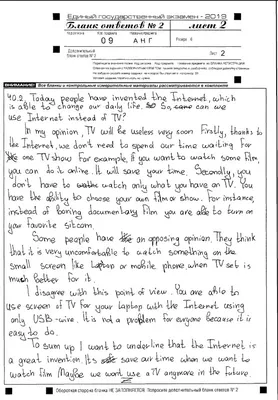 Единый государственный экзамен - 2019
Бланк ответов № 2 лист 2
09 АНГ
Лист 2
ВНИМАНИЕ! Все бланки и контрольные измерительные материалы рассматриваются в комплекте
40.2. Today people have invented the Internet, which
is able to change our daily life. So can we
use Internet instead of TV?
In my opinion, TV will be useless very soon. Firstly, thanks to
the Internet, we don't need to spend our time waiting for
one TV show. For example, if you want to watch some film,
you can do it online. It will save your time. Secondly, you
don't have to watch only what you have on TV. You
have the ability to choose your own film or show. For instance,
instead of boring documentary film you are able to turn on
your favorite sitcom.
Some people have an opposing opinion. They think
that it is very uncomfortable to watch something on the
small screen like laptop or mobile phone when TV set is
much better for it.
I disagree with this point of view. You are able to
use screen of TV for your laptop with the Internet using
only USB-wire. It is not a problem for everyone because it is
easy to do.
To sum up I want to underline that the Internet is
a great invention. It save our time when we want to
watch film. Maybe we wont use a TV anymore in the future.
Оборотная сторона бланка НЕ ЗАПОЛНЯЕТСЯ. Попросите дополнительный бланк ответов № 2